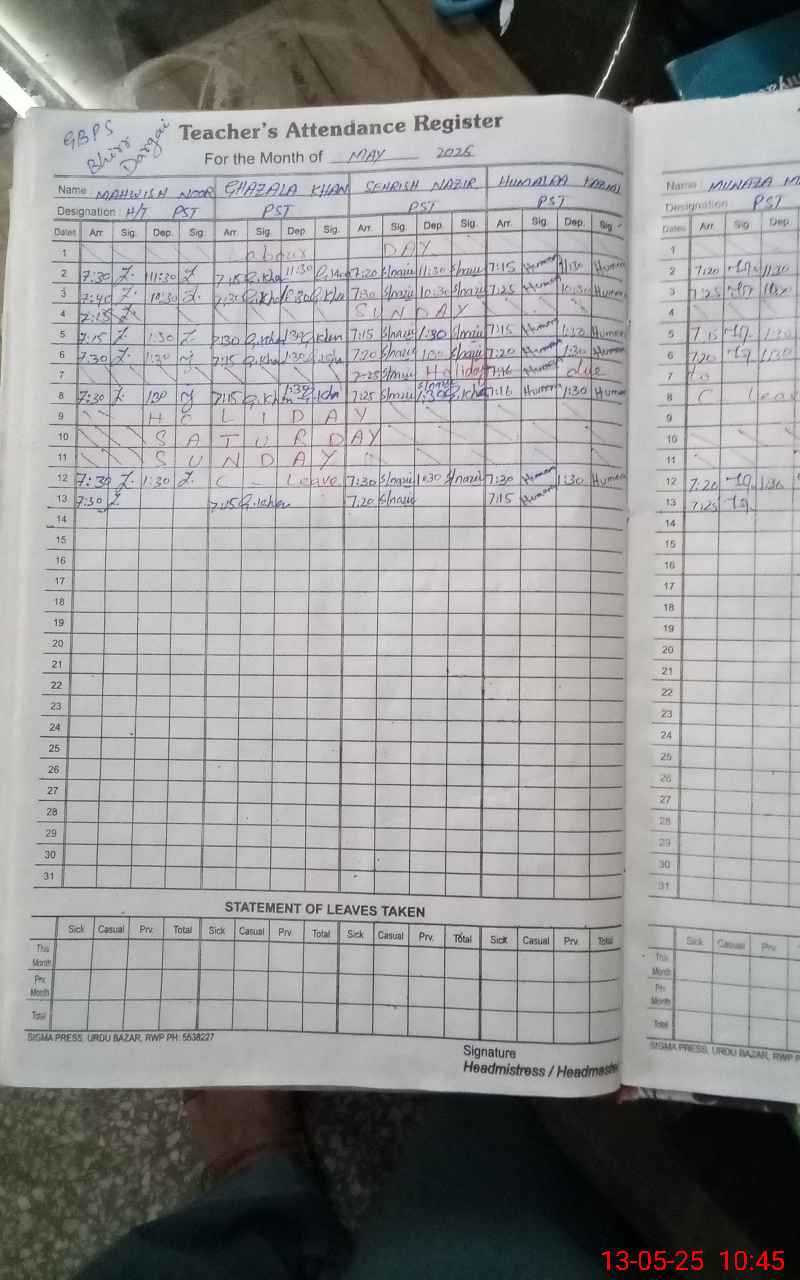 GBPS
Bhirr
Dargai
Teacher's Attendance Register
For the Month of MAY 2025
Name MAHWISH NOOR GHAZALA KHAN SEHRISH NAZIR HUMAIRA
Designation H/T PST PST PST PST
Dates Arr. Sig. Dep. Sig. Arr. Sig. Dep. Sig. Arr. Sig. Dep. Sig. Arr. Sig. Dep. Sig.
1 Labour DAY
2 7:30 Z. 11:30 Z 7:15 G.Khan 11:30 G.Khan 7:20 S/nazir 11:30 S/nazir 7:15 Human 11:30 Human
3 7:40 Z. 10:30 Z. 7:30 G.Kha 10:30 G.Kha 7:30 S/nazir 10:30 S/nazir 7:25 Human 10:30 Human
4 7:15 Z. SUNDAY
5 7:15 Z. 1:30 Z. 7:30 G.Kha 1:30 G.Khan 7:15 S/nazir 1:30 S/nazir 7:15 Human 1:30 Human
6 7:30 Z. 1:30 7:15 G.Kha 1:30 G.Kha 7:20 S/nazir 1:30 S/nazir 7:20 Human 1:30 Human
7 7:25 S/nazir Holiday 7:16 Human due
8 7:30 Z. 1:30 7:15 G.Khan 1:30 G.Kha 7:25 S/nazir S/nazir 1:30 G.Khan 7:16 Human 1:30 Human
9 HOLIDAY
10 SATURDAY
11 SUNDAY
12 7:30 Z. 1:30 Z. C - Leave 7:30 S/nazir 1:30 S/nazir 7:30 Human 1:30 Human
13 7:30 Z. 7:15 G.Khan 7:20 S/nazir 7:15 Human
14
15
16
17
18
19
20
21
22
23
24
25
26
27
28
29
30
31
STATEMENT OF LEAVES TAKEN
Sick Casual Prv. Total Sick Casual Prv. Total Sick Casual Prv. Total Sick Casual Prv. Total
This Month
Prv. Month
Total
SIGMA PRESS, URDU BAZAR, RWP PH: 5538227
Signature
Headmistress / Headmaster
Name MUNAZA
Designation PST
Dates Arr. Sig. Dep.
1
2 7:20 11:30
3 7:25
4
5 7:15 1:30
6 7:20 1:30
7 to
8 C Leave
9
10
11
12 7:20 1:30
13 7:25
14
15
16
17
18
19
20
21
22
23
24
25
26
27
28
29
30
31
Sick Casual Prv.
This Month
Prv. Month
Total
SIGMA PRESS, URDU BAZAR, RWP
13-05-25 10:45